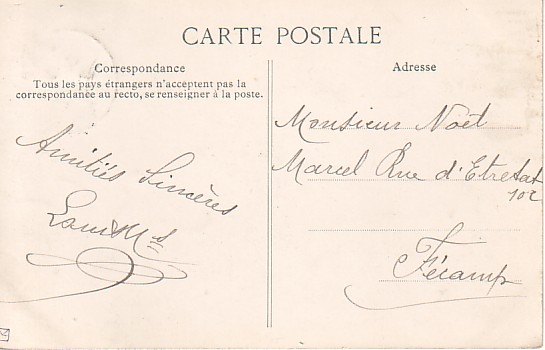 CARTE POSTALE
Correspondance
Tous les pays étrangers n'acceptent pas la
correspondance au recto, se renseigner à la poste.
Adresse
Amitiés Sincères
Monsieur Noël
Marcel Rue d'Etretat
102
Fécamp